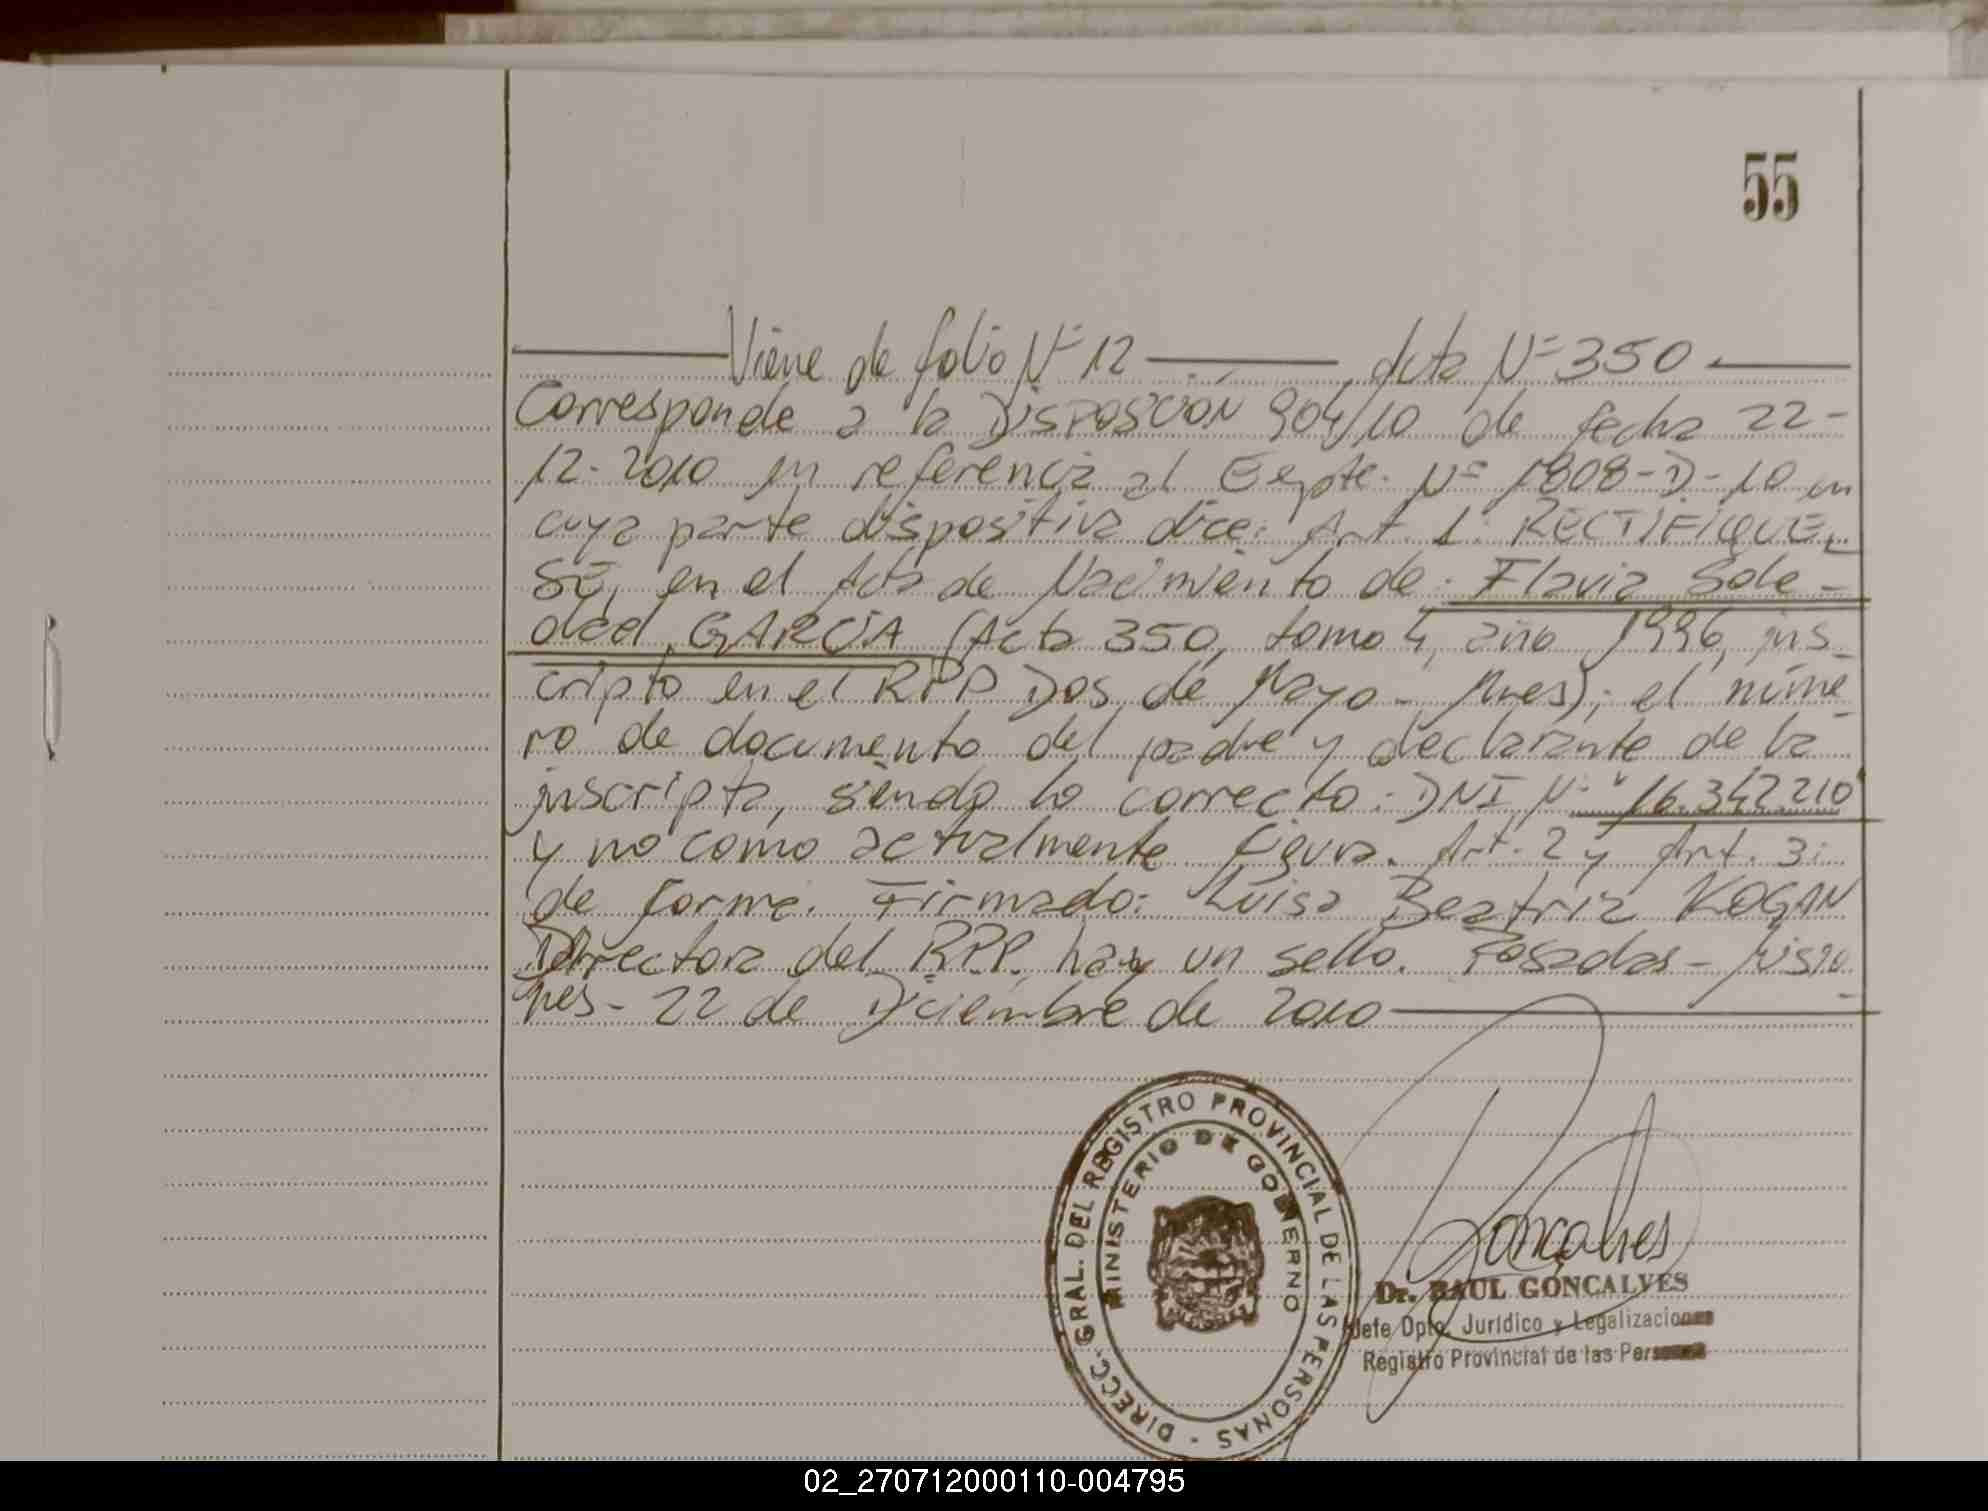 55
Viene de folio Nº 12 Acta Nº 350
Corresponde a la Disposición 904/10 de fecha 22-
12-2010 en referencia al Expte. Nº 1808-D-10 en
cuya parte dispositiva dice: Art. 1: RECTIFIQUE-
SE, en el Acta de Nacimiento de: Flavia Sole-
dad GARCÍA (Acta 350, tomo 4, año 1996, ins-
cripto en el RPP Dos de Mayo - Mnes); el núme-
ro de documento del padre y declarante de la
inscripta, siendo lo correcto: DNI Nº "16.342.210"
y no como actualmente figura. Art. 2 y Art. 3:
de forma. Firmado: Luisa Beatriz KOGAN
Directora del R.P.P. hay un sello. Posadas - Misio-
nes - 22 de Diciembre de 2010
DIRECC. GRAL. DEL REGISTRO PROVINCIAL DE LAS PERSONAS -
MINISTERIO DE GOBIERNO
Goncalves
Dr. RAUL GONCALVES
Jefe Opto. Jurídico y Legalizaciones
Registro Provincial de las Personas
02_270712000110-004795